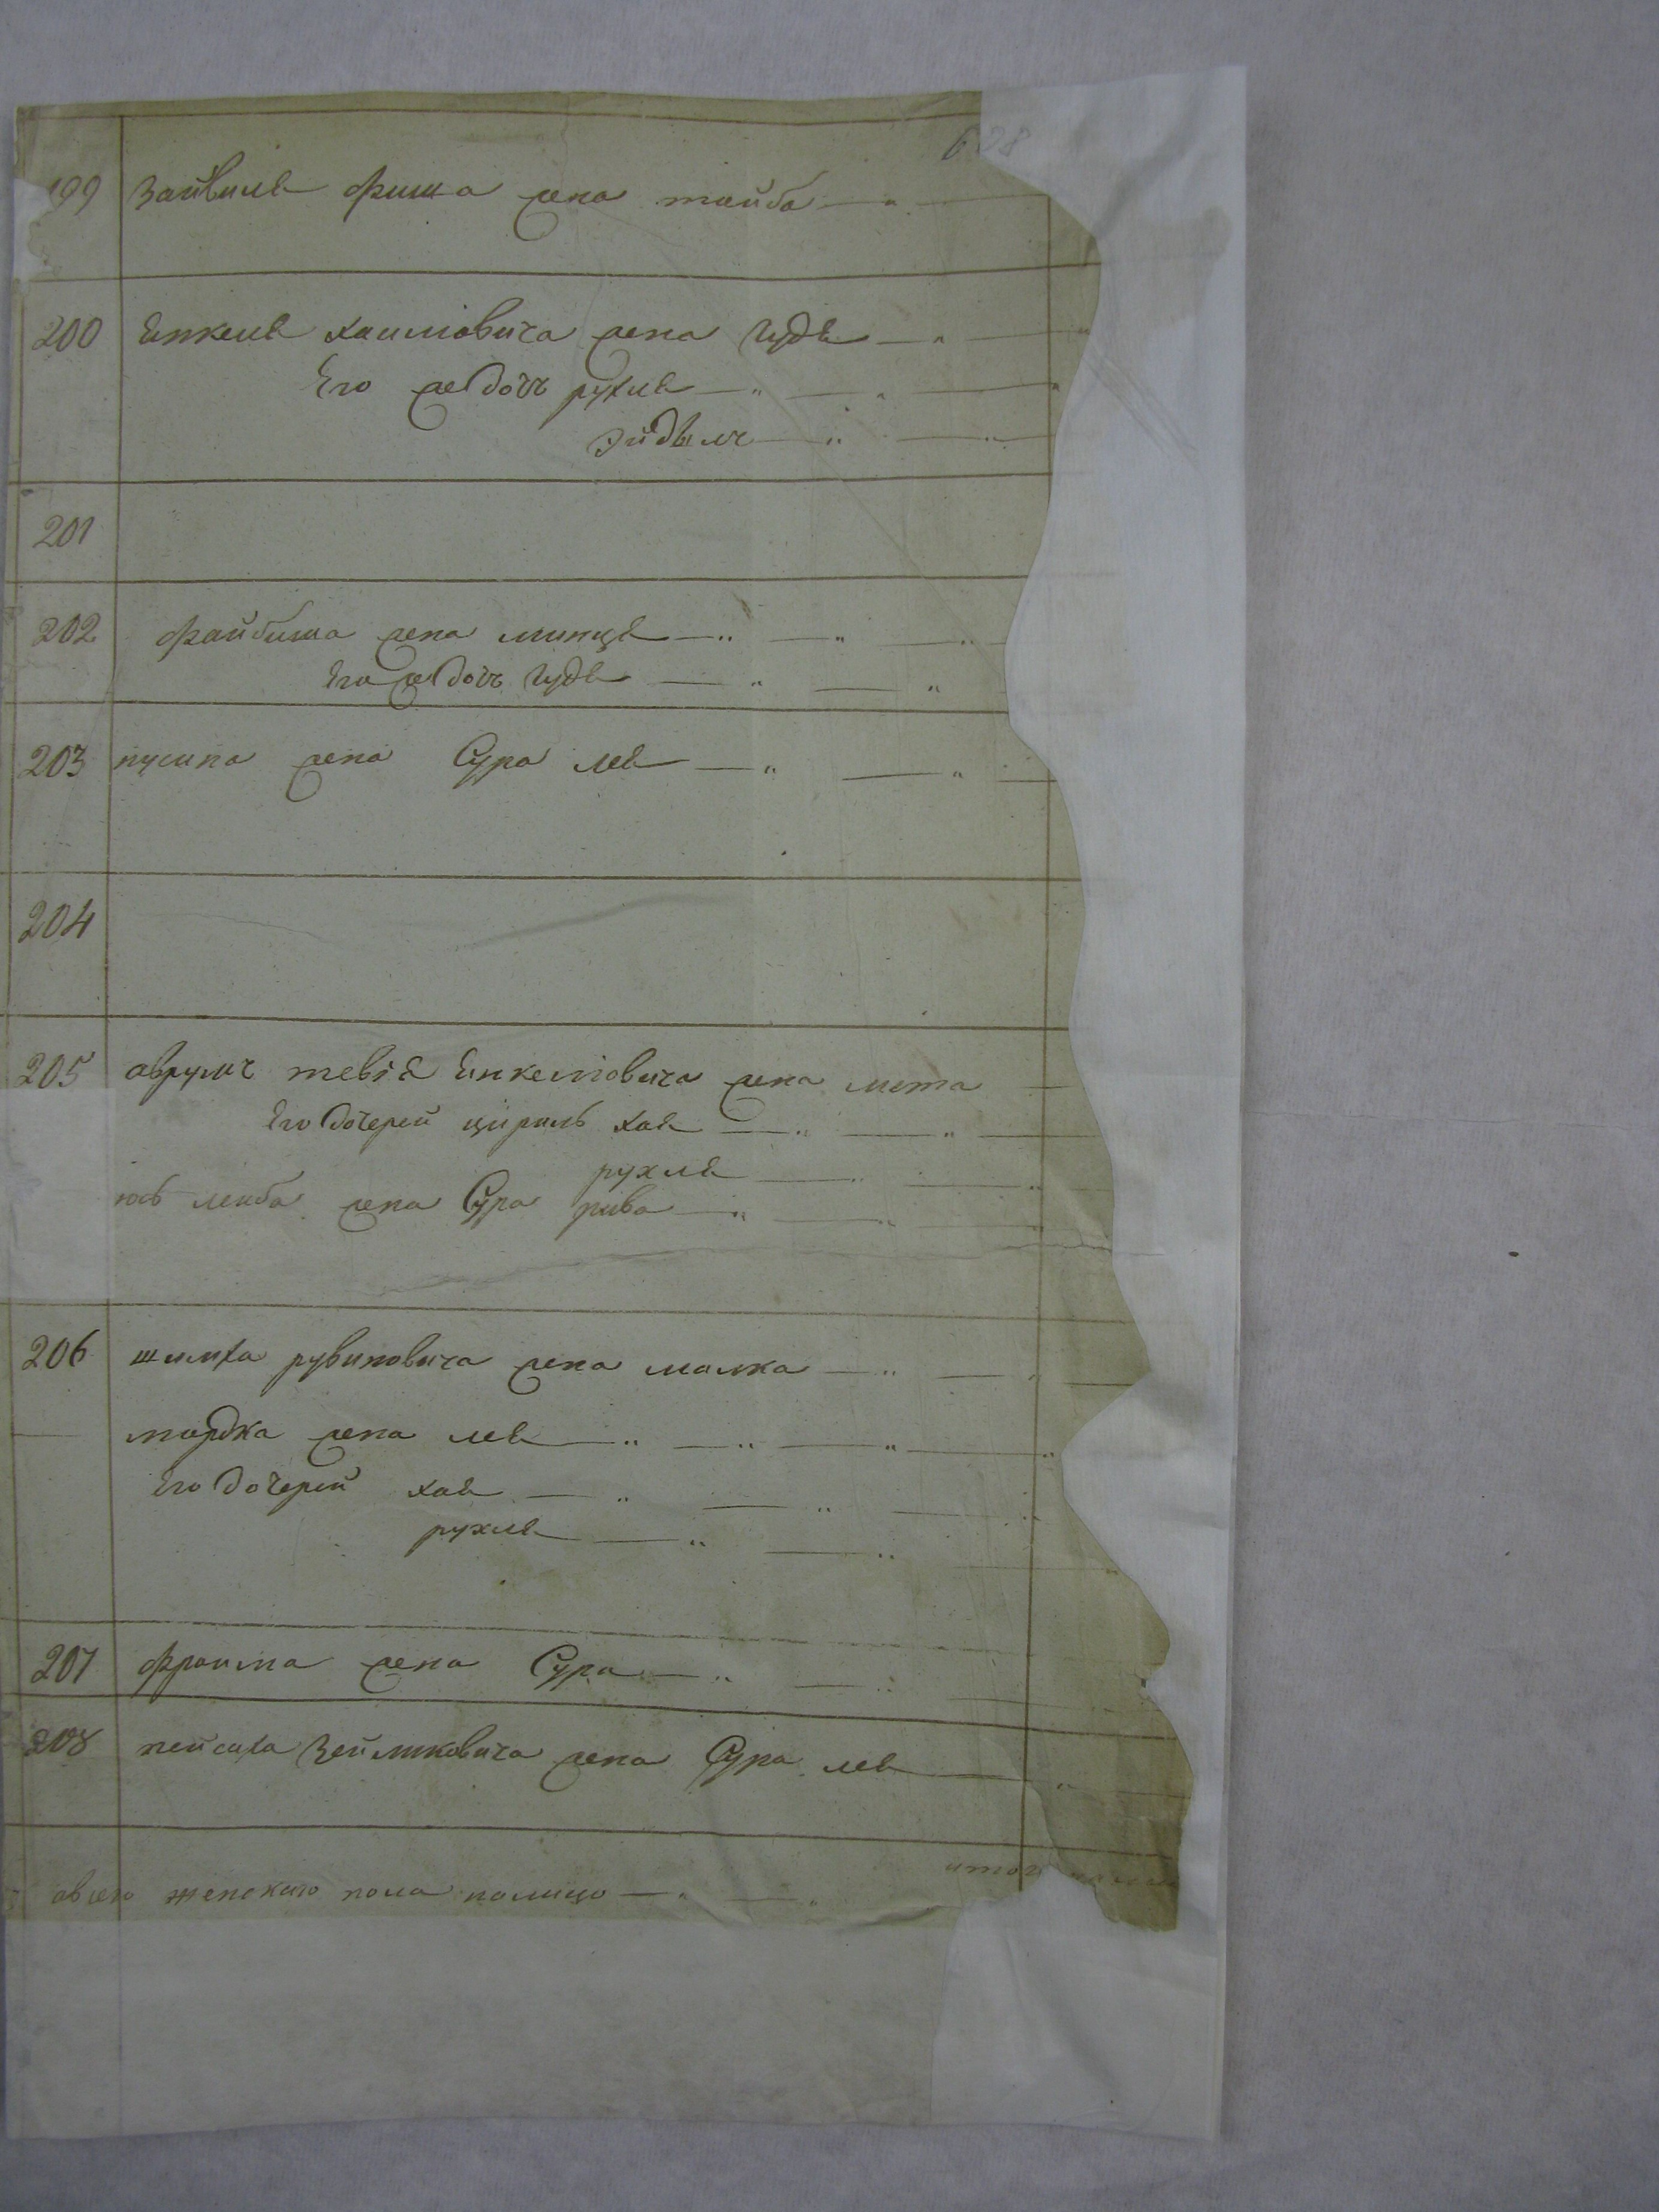 608
199 Зайвиля фиша жена тайба
200 Енкеля хаимовича жена гудя
Его же дочь рухля
Эйдылъ
201
202 файбиша жена минця
Его же дочь гудя
203 нусина жена Сура лея
204
205 аврумъ тевія Енкеліовича жена мета
Его дочерей цирыль хая
рухля
іось лейба жена Сура рива
206 шимха рувиновича жена малка
мордка жена лея
Его дочерей хая
рухля
207 фроима жена Сура
208 пейсаха Зейликовича жена Сура лея
итого
авсего женскаго пола налицо